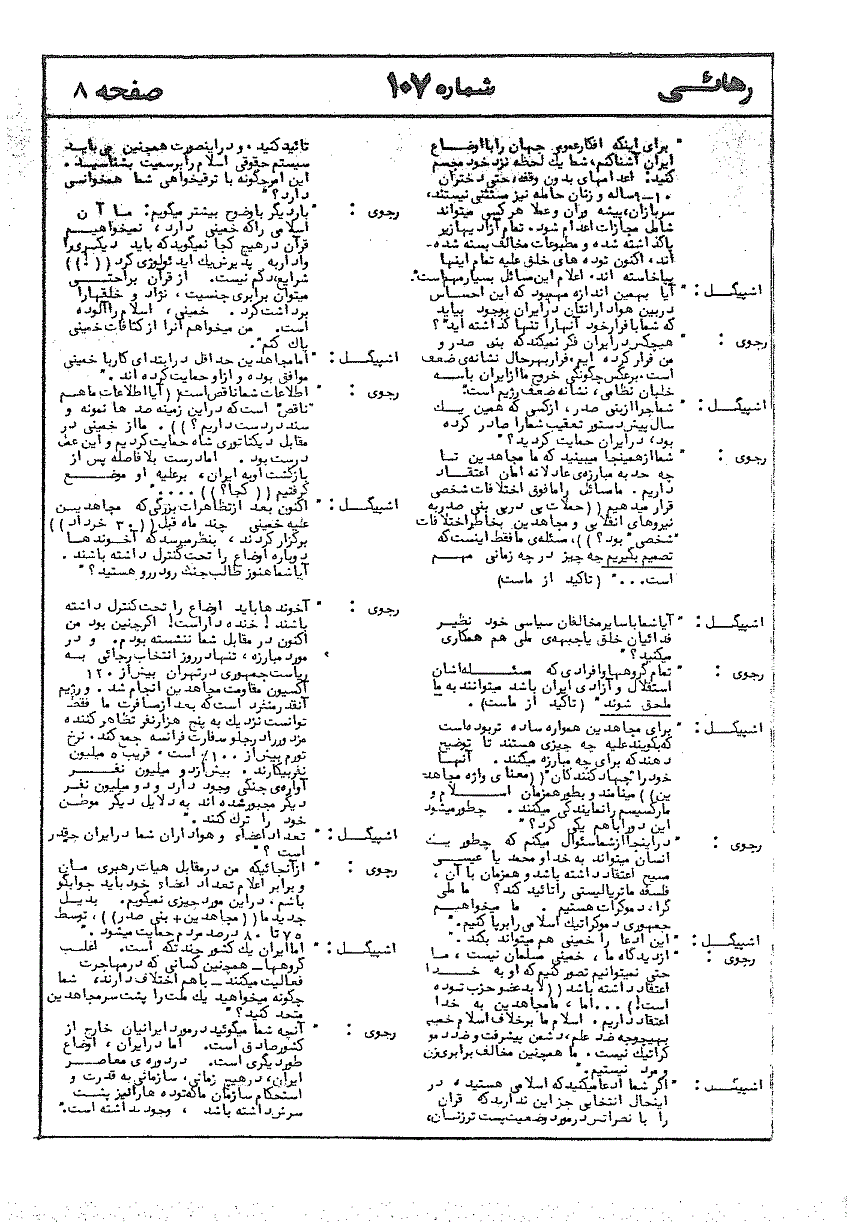 رهائی
شماره ۱۰۷
صفحه ۸
" برای اینکه افکار عمومی جهان را با اوضاع
ایران آشنا کنم، شما یك لحظه نزد خود مجسم
کنید: اعدامهای بدون وقفه، حتی دختران
۹-۱۰ ساله و زنان حامله نیز مستثنی نیستند،
سربازان، پیشه وران و عملا هرکسی میتواند
شامل مجازات اعدام شود. تمام آزادیها زیر
پا گذاشته شده و مطبوعات مخالف بسته شده-
اند، اکنون توده های خلق علیه تمام اینها
بپاخاسته اند. اعلام این مسائل بسیار مهم است."
اشپیگل : " آیا بهمین اندازه مهم بود که این احساس
در بین هوادارانتان در ایران بوجود بیاید
که شما با فرار خود آنها را تنها گذاشته اید؟"
رجوی : " هیچکس در ایران فکر نمیکند که بنی صدر و
من فرار کرده ایم، فرار بهرحال نشانه ی ضعف
است، برعکس چگونگی خروج ما از ایران با سه
خلبان نظامی، نشانه ضعف رژیم است."
اشپیگل : " شما چرا از بنی صدر، از کسی که همین یك
سال پیش دستور تعقیب شما را صادر کرده
بود، در ایران حمایت کردید؟"
رجوی : " شما از همینجا میبینید که ما مجاهدین تا
چه حد به مبارزه ی عادلانه امان اعتقاد
داریم. ما مسائل را مافوق اختلافات شخصی
قرار میدهیم ((حملات پی در پی بنی صدر به
نیروهای انقلابی و مجاهدین بخاطر اختلافات
"شخصی" بود؟))، مسئله ی ما فقط اینست که
تصمیم بگیریم چه چیز در چه زمانی مهم
است..." (تاکید از ماست)
اشپیگل : " آیا شما با سایر مخالفان سیاسی خود نظیر
فدائیان خلق یا جبهه ی ملی هم همکاری
میکنید؟"
رجوی : " تمام گروهها و افرادی که مسئله اشان
استقلال و آزادی ایران باشد میتوانند به ما
ملحق شوند" (تاکید از ماست).
اشپیگل : " برای مجاهدین همواره ساده تر بوده است
که بگویند علیه چه چیزی هستند تا توضیح
دهند که برای چه مبارزه میکنند. آنها
خود را "جهاد کنندگان" ((معنای واژه مجاهد-
ین)) مینامند و بطور همزمان اسلام و
مارکسیسم را نمایندگی میکنند. چطور میشود
این دو را با هم یکی کرد؟"
رجوی : " در اینجا از شما سئوال میکنم که چطور یك
انسان میتواند به خدا و محمد یا عیسی
مسیح اعتقاد داشته باشد و همزمان با آن،
فلسفه ماتریالیستی را تائید کند؟ ما ملی
گرا، دموکرات هستیم. ما میخواهیم
جمهوری دموکراتیك اسلامی را برپا کنیم."
اشپیگل : " این ادعا را خمینی هم میتواند بکند."
رجوی : " از دیدگاه ما، خمینی مسلمان نیست، ما
حتی نمیتوانیم تصور کنیم که او به خدا
اعتقاد داشته باشد ((لابد عضو حزب توده
است!))...اما، ما مجاهدین به خدا
اعتقاد داریم. اسلام ما برخلاف اسلام خمینی
بهیچوجه ضد علم، دشمن پیشرفت و ضد دمو
کراتیك نیست. ما همچنین مخالف برابری زن
و مرد نیستیم."
اشپیگل : " اگر شما ادعا میکنید که اسلامی هستید در
اینحال انتخابی جز این ندارید که قرآن
را با نص در مورد وضعیت پست تر زنان،
تائید کنید. و در اینصورت همچنین می باید
سیستم حقوقی اسلام را برسمیت بشناسید.
این امر چگونه با ترقیخواهی شما همخوانی
دارد؟"
رجوی : " بار دیگر با وضوح بیشتر میگویم: ما آن
اسلامی را که خمینی دارد، نمیخواهیم
قرآن در هیچ کجا نمیگوید که باید دیگری را
وادار به پذیرش یك ایدئولوژی کرد ((!))
شرایع، دگم نیست. از قرآن براحتی
میتوان برابری جنسیت، نژاد و خلقها را
برداشت کرد. خمینی، اسلام را آلوده
است. من میخواهم آنرا از کثافات خمینی
پاك کنم."
اشپیگل : " اما مجاهدین حداقل در ابتدای کار با خمینی
موافق بوده و از او حمایت کرده اند."
رجوی : " اطلاعات شما ناقص است ((آیا اطلاعات ما هم
"ناقص" است که در این زمینه صدها نمونه و
سند در دست داریم؟)). ما از خمینی در
مقابل دیکتاتوری شاه حمایت کردیم و این عمل
درست بود. اما درست بلافاصله پس از
بازگشت او به ایران، بر علیه او موضع
گرفتیم ((کجا؟))...."
اشپیگل : " اکنون بعد از تظاهرات بزرگی که مجاهدین
علیه خمینی چند ماه قبل ((۳۰ خرداد))
برگزار کردند، بنظر میرسد که آخوندها
دوباره اوضاع را تحت کنترل داشته باشند.
آیا شما هنوز طالب جنگ رودررو هستید؟"
رجوی : " آخوندها باید اوضاع را تحت کنترل داشته
باشند! خنده دار است! اگر چنین بود من
اکنون در مقابل شما ننشسته بودم. و در
مورد مبارزه، تنها در روز انتخاب رجائی به
ریاست جمهوری در تهران بیش از ۱۲۰
آکسیون مقاومت مجاهدین انجام شد. و رژیم
آنقدر منفرد است که بعد از مسافرت ما فقط
توانست نزدیك به پنج هزار نفر تظاهر کننده
مزدور را در جلو سفارت فرانسه جمع کند. نرخ
تورم بیش از ۱۰۰٪ است. قریب ۵ میلیون
نفر بیکارند. بیش از دو میلیون نفر
آواره ی جنگی وجود دارد و دو میلیون نفر
دیگر مجبور شده اند به دلایل دیگر موطن
خود را ترك کنند."
اشپیگل : " تعداد اعضاء و هواداران شما در ایران چقدر
است؟"
رجوی : " از آنجائیکه من در مقابل هیات رهبری مان
و برابر اعلام تعداد اعضاء خود باید جوابگو
باشم. در این مورد چیزی نمیگویم. بدیل
جدید ما ((مجاهدین + بنی صدر))، توسط
۷۵ تا ۸۰ درصد مردم حمایت میشود."
اشپیگل : " اما ایران یك کشور چند تکه است. اغلب
گروهها - همچنین کسانی که در مهاجرت
فعالیت میکنند - با هم اختلاف دارند، شما
چگونه میخواهید یك ملت را پشت سر مجاهدین
متحد کنید؟"
رجوی : " آنچه شما میگوئید در مورد ایرانیان خارج از
کشور صادق است. اما در ایران، اوضاع
طور دیگری است. در دوره ی معاصر
ایران، در هیچ زمانی، سازمانی به قدرت و
استحکام سازمان ما که توده ها را نیز پشت
سر داشته باشد، وجود نداشته است."